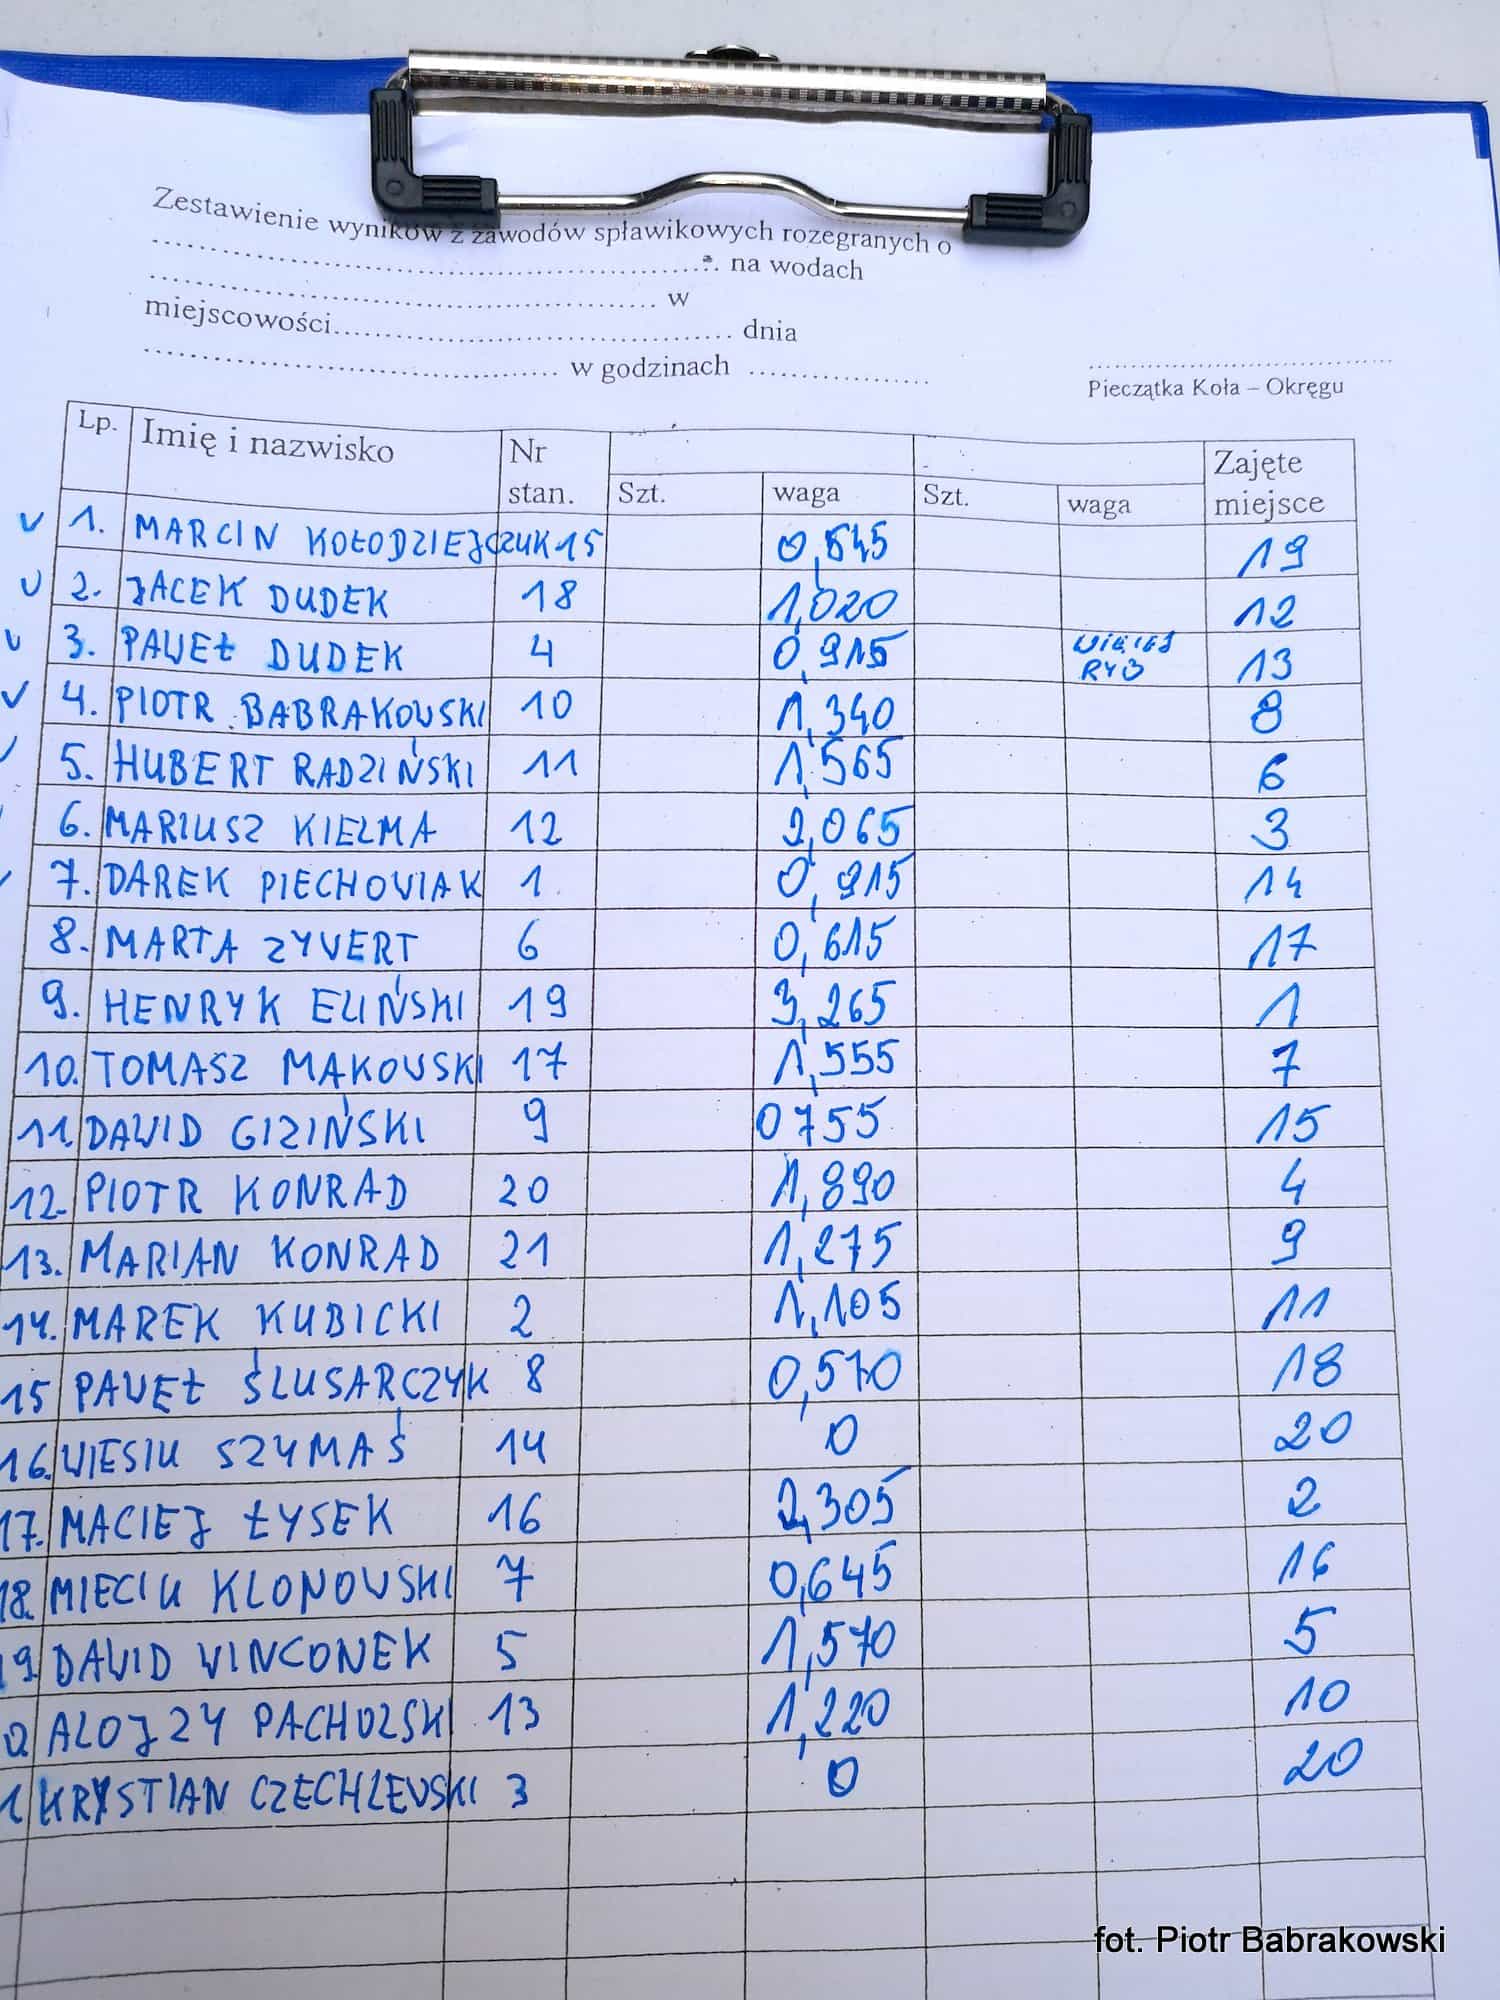 Zestawienie wyników z zawodów spławikowych rozegranych o
na wodach
w
miejscowości dnia
w godzinach
Pieczątka Koła – Okręgu
Lp. Imię i nazwisko Nr stan. Szt. waga Szt. waga Zajęte miejsce
1. MARCIN KOŁODZIEJCZUK 15 0,545 19
2. JACEK DUDEK 18 1,020 12
3. PAWEŁ DUDEK 4 0,915 WIĘCEJ RYB 13
4. PIOTR BABRAKOWSKI 10 1,340 8
5. HUBERT RADZIŃSKI 11 1,565 6
6. MARIUSZ KIELMA 12 2,065 3
7. DAREK PIECHOWIAK 1 0,915 14
8. MARTA ZYWERT 6 0,615 17
9. HENRYK ELIŃSKI 19 3,265 1
10. TOMASZ MAKOWSKI 17 1,555 7
11. DAWID GIZIŃSKI 9 0755 15
12. PIOTR KONRAD 20 1,890 4
13. MARIAN KONRAD 21 1,275 9
14. MAREK KUBICKI 2 1,105 11
15 PAWEŁ ŚLUSARCZYK 8 0,570 18
16. WIESIU SZYMAŚ 14 0 20
17. MACIEJ ŁYSEK 16 2,305 2
18. MIECIU KLONOWSKI 7 0,645 16
19. DAWID WINCONEK 5 1,570 5
0. ALOJZY PACHOLSKI 13 1,220 10
1. KRYSTIAN CZECHLEWSKI 3 0 20
fot. Piotr Babrakowski